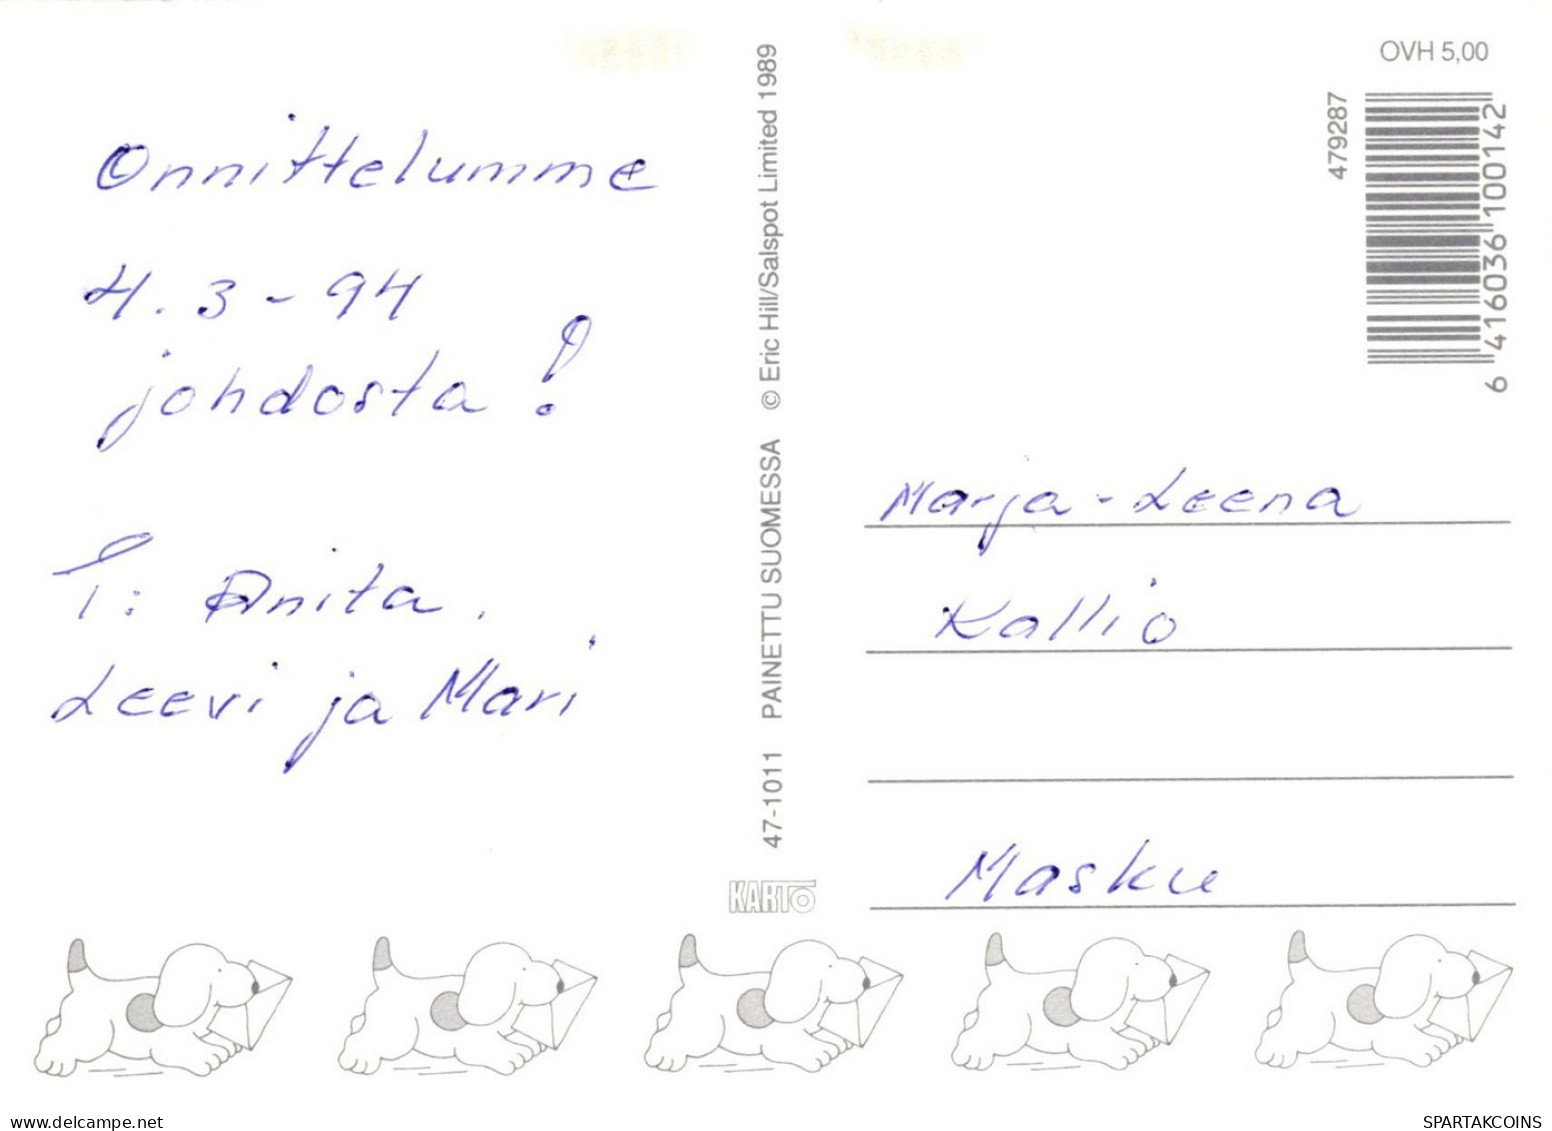 Onnittelumme
4.3-94
johdosta!
T: Anita.
Leevi ja Mari
47-1011 PAINETTU SUOMESSA © Eric Hill/Salspot Limited 1989
KARTO
OVH 5,00
479287
6 416036 100142
Marja-Leena
Kallio
Masku
delcampe.net
SPARTAKCOINS